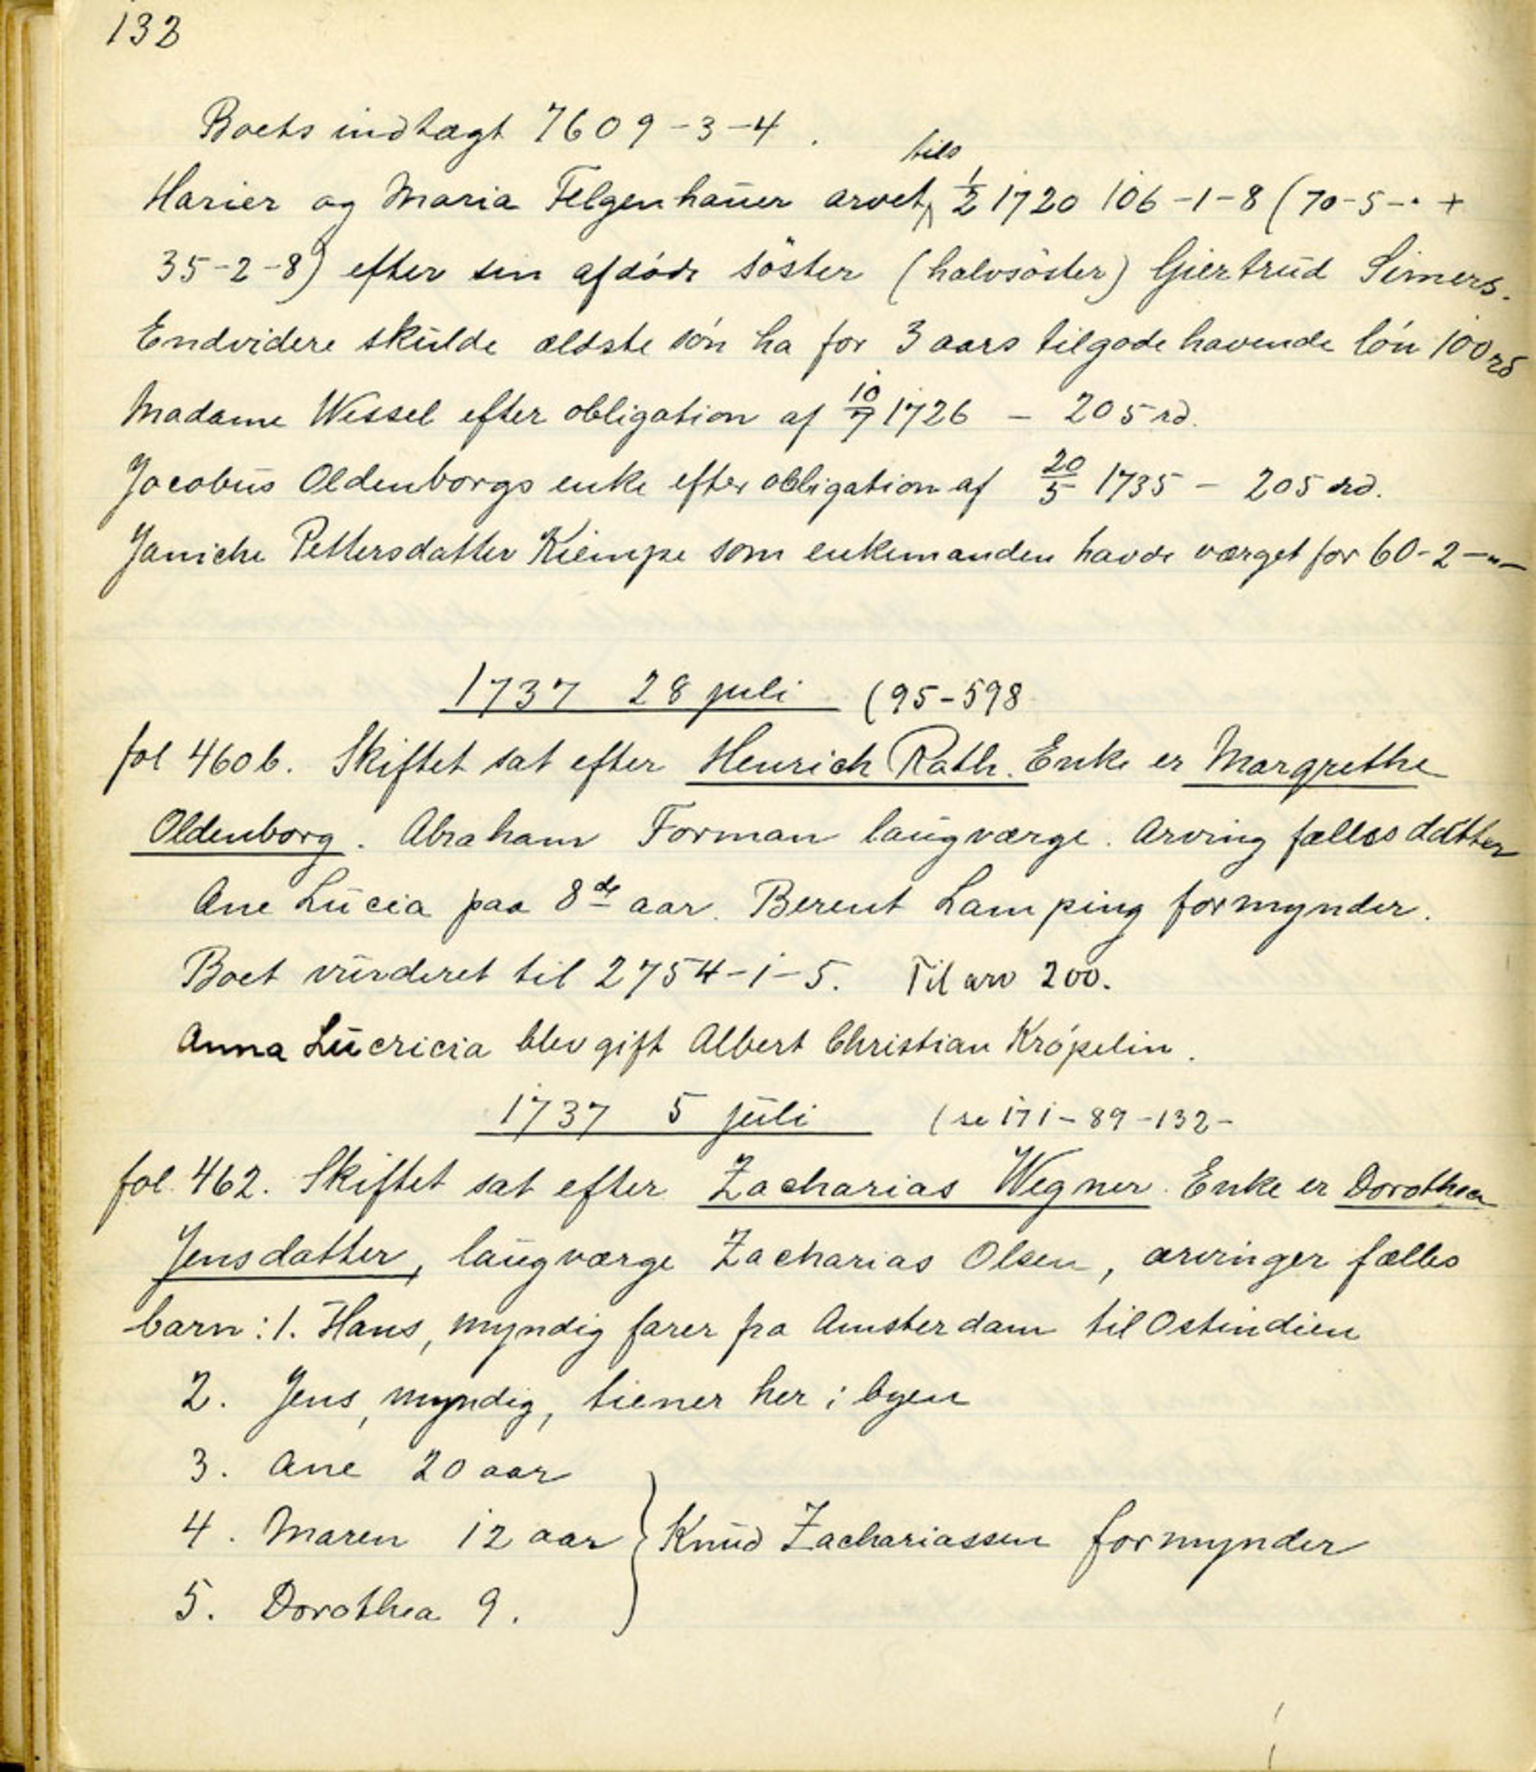 132
Boets indtægt 7609-3-4.
tils
Harier og Maria Felgenhauer arvet 1/2 1720 106-1-8 (70-5-· +
35-2-8) efter sin afdøde søster (halvsøster) Giertrud Simers.
Endvidere skulde ældste søn ha for 3 aars tilgodehavende løn 100 rd
Madame Wessel efter obligation af 10/7 1726 - 205 rd.
Jacobus Oldenborgs enke efter obligation af 20/5 1735 - 205 rd.
Janiche Pettersdatter Kiempe som enkemanden havde værget for 60-2-"-
1737 28 juli (95-598
fol 460b. Skiftet sat efter Henrich Rath. Enke er Margrethe
Oldenborg. Abraham Forman laugværge. Arving fælles datter
Ane Lucia paa 8de aar. Berent Lamping formynder.
Boet vurderet til 2754-1-5. Til arv 200.
Anna Lucricia blev gift Albert Christian Krøpelin.
1737 5 juli (se 171-89-132-
fol. 462. Skiftet sat efter Zacharias Wegner. Enke er Dorothea
Jensdatter, laugværge Zacharias Olsen, arvinger fælles
barn: 1. Hans, myndig farer fra Amsterdam til Ostindien
2. Jens, myndig, tiener her i byen
3. Ane 20 aar
4. Maren 12 aar } Knud Zachariassen formynder
5. Dorothea 9.